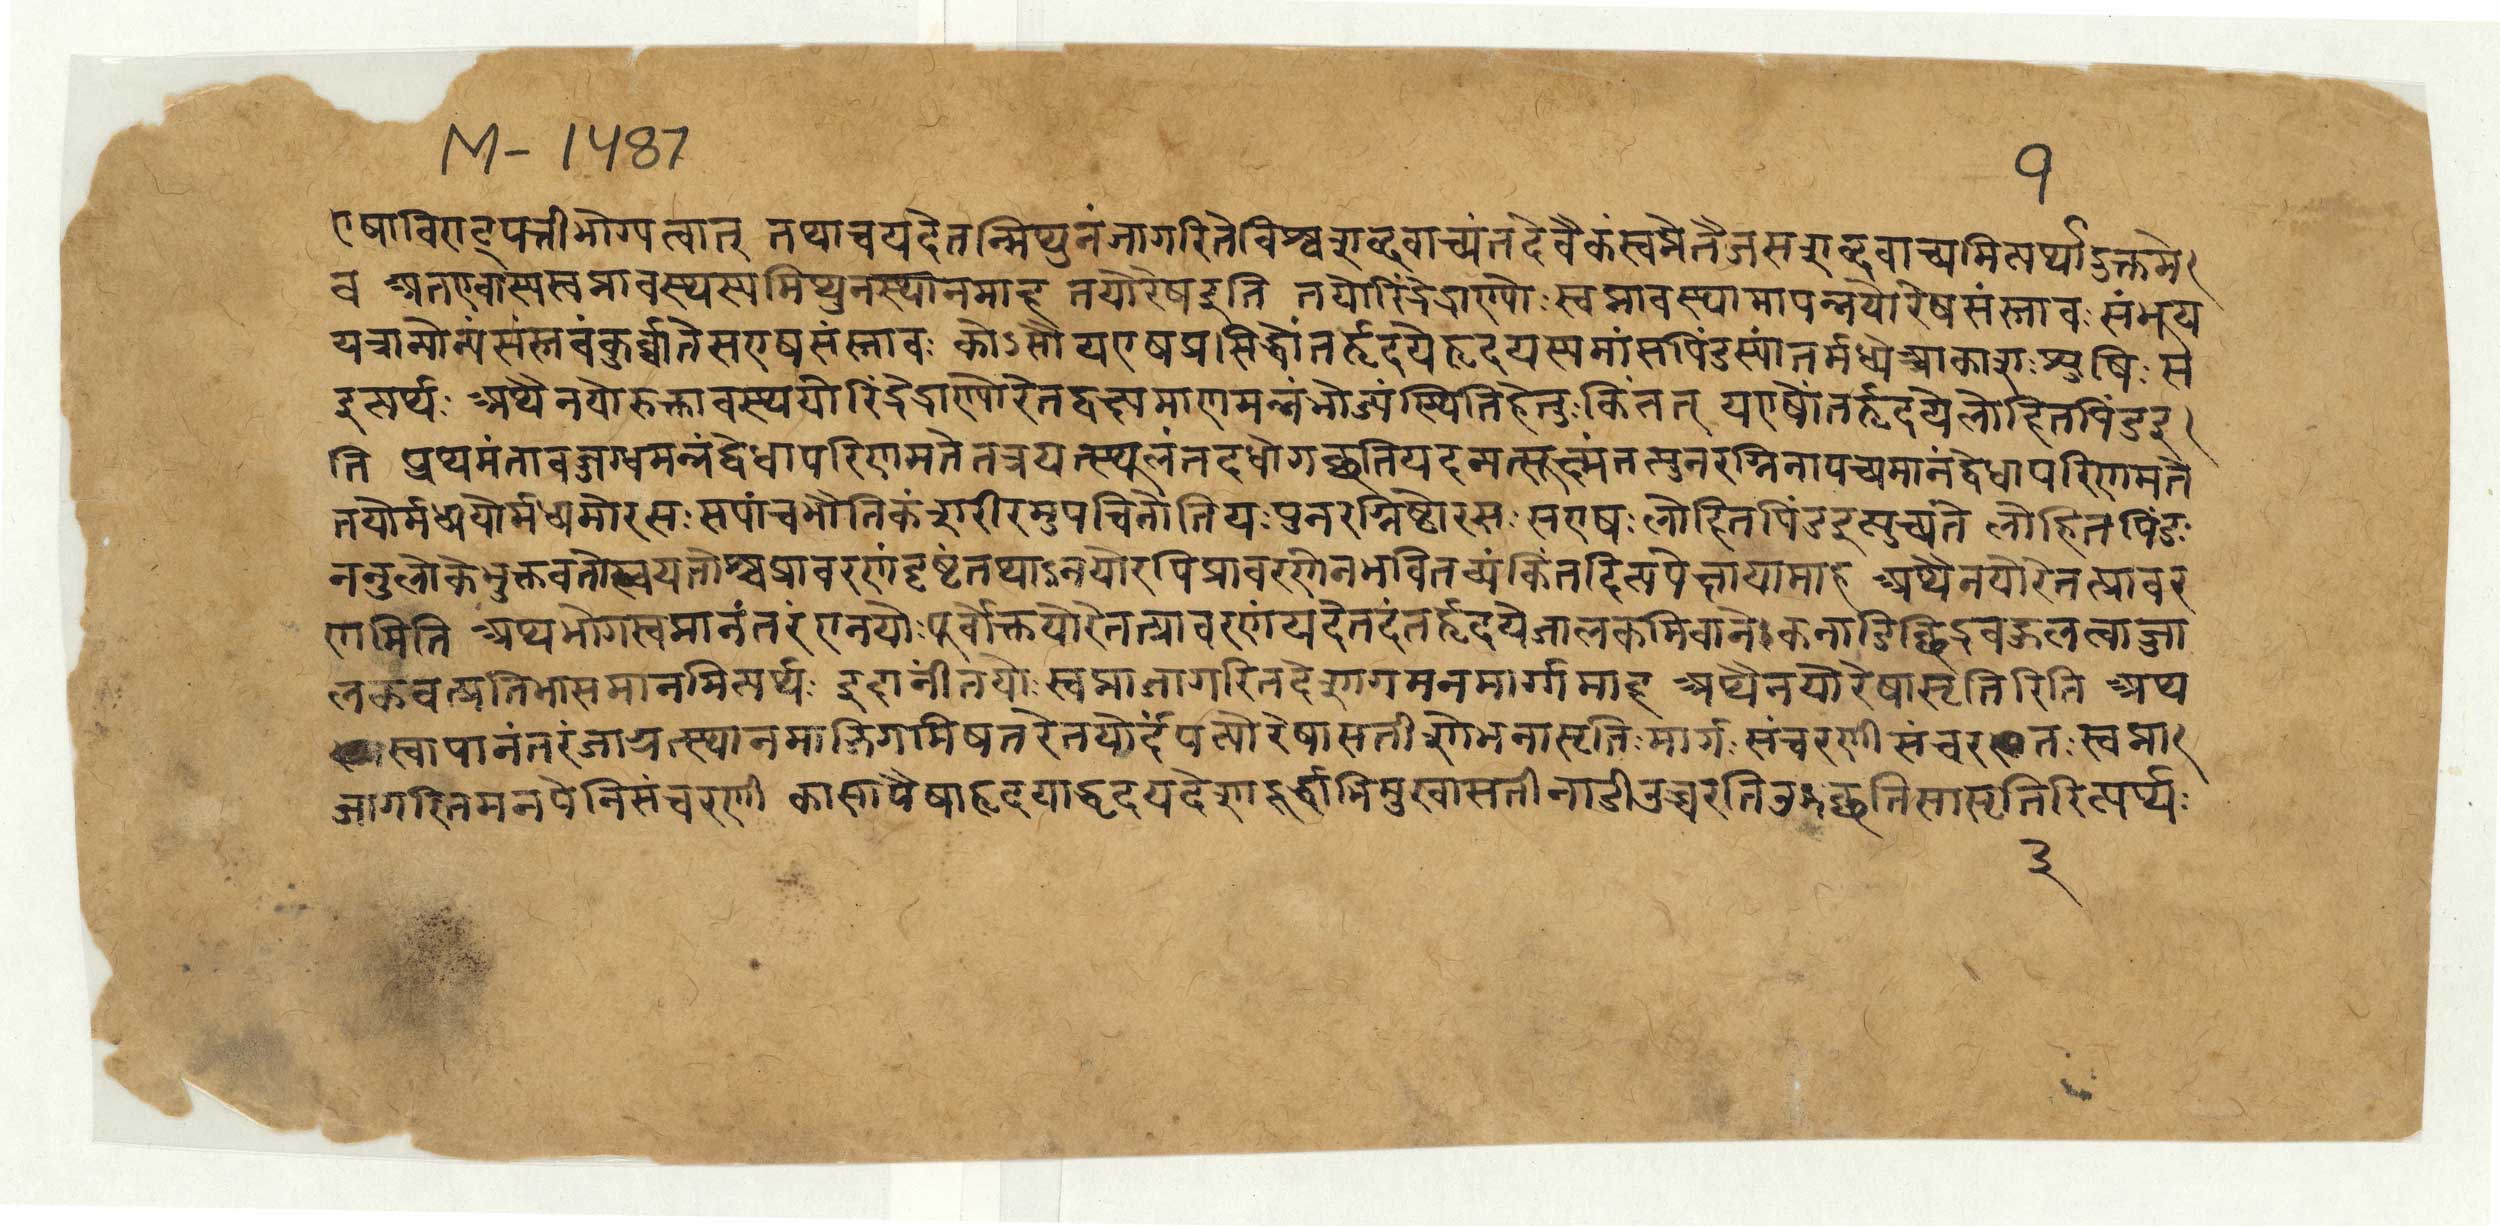 M-1487
१
एषा विराट्पत्नी भोग्यत्वात् तथा च यदेतन्मिथुनं जागरिते विश्वशब्दवाच्यं तदेवैकं स्वप्ने तैजसशब्दवाच्यमित्यर्थाडुक्तमे
व अत एवास्य स्वप्नावस्थस्य मिथुनस्थानमाह तयोरेष इति तयोरिंद्रेंद्राण्योः स्वप्नावस्थामापन्नयोरेष संस्तावः संभूय
यत्रान्योन्यं संस्तवं कुर्व्वाते स एष संस्तावः कोऽसौ य एष प्रसिद्धोंतर्हृदये हृदयस्य मांसपिंडस्यांतर्मध्ये आकाशः सुषिः स
इत्यर्थः अथैनयोरुक्तावस्थयोरिंद्रेंद्राण्योरेतद्वक्ष्यमाणमन्नं भोज्यं स्थितिहेतुः किं तत् य एषोंतर्हृदये लोहितपिंड इ
ति प्रथमं तावज्जग्धमन्नं द्वेधा परिणमते तत्र यत्स्थूलं तदधो गच्छति यदन्यत्सूक्ष्मं तत्पुनरग्निना पच्यमानं द्वेधा परिणमते
तयोर्मध्ययोर्मध्यमो रसः स पांचभौतिकं शरीरमुपचिनोति यः पुनरणिष्टो रसः स एषः लोहितपिंड इत्युच्यते लोहितपिंडः
ननु लोके भुक्तवतोस्स्वयतोश्च प्रावरणं दृष्टं तथाऽनयोरपि प्रावरणेन भवितव्यं किं तदित्यपेक्षायामाह अथैनयोरेतत्प्रावर
णमिति अथ भोगस्वप्नानंतरं एनयोः पूर्वोक्तयोरेतत्प्रावरणं यदेतदंतर्हृदये जालकमिवानेकनाडिछिद्रबहुलत्वाज्जा
लकवत्प्रतिभासमानमित्यर्थः इदानीं तयोः स्वप्नाज्जागरितदेशागमनमार्गमाह अथैनयोरेषा सृतिरिति अथ
स्वापानंतरं जाग्रत्स्थानमाजिगमिषतरेतयोर्दंपत्योरेषा सती शोभना सृतिः मार्गः संचरणी संचर तः स्वप्ना
जागरितमनयेति संचरणी का सा यैषा हृदयाद्धृदयदेशादूर्द्ध्वाभिमुखा सती नाडी उच्चरति उद्गच्छति सा सृतिरित्यर्थः
३